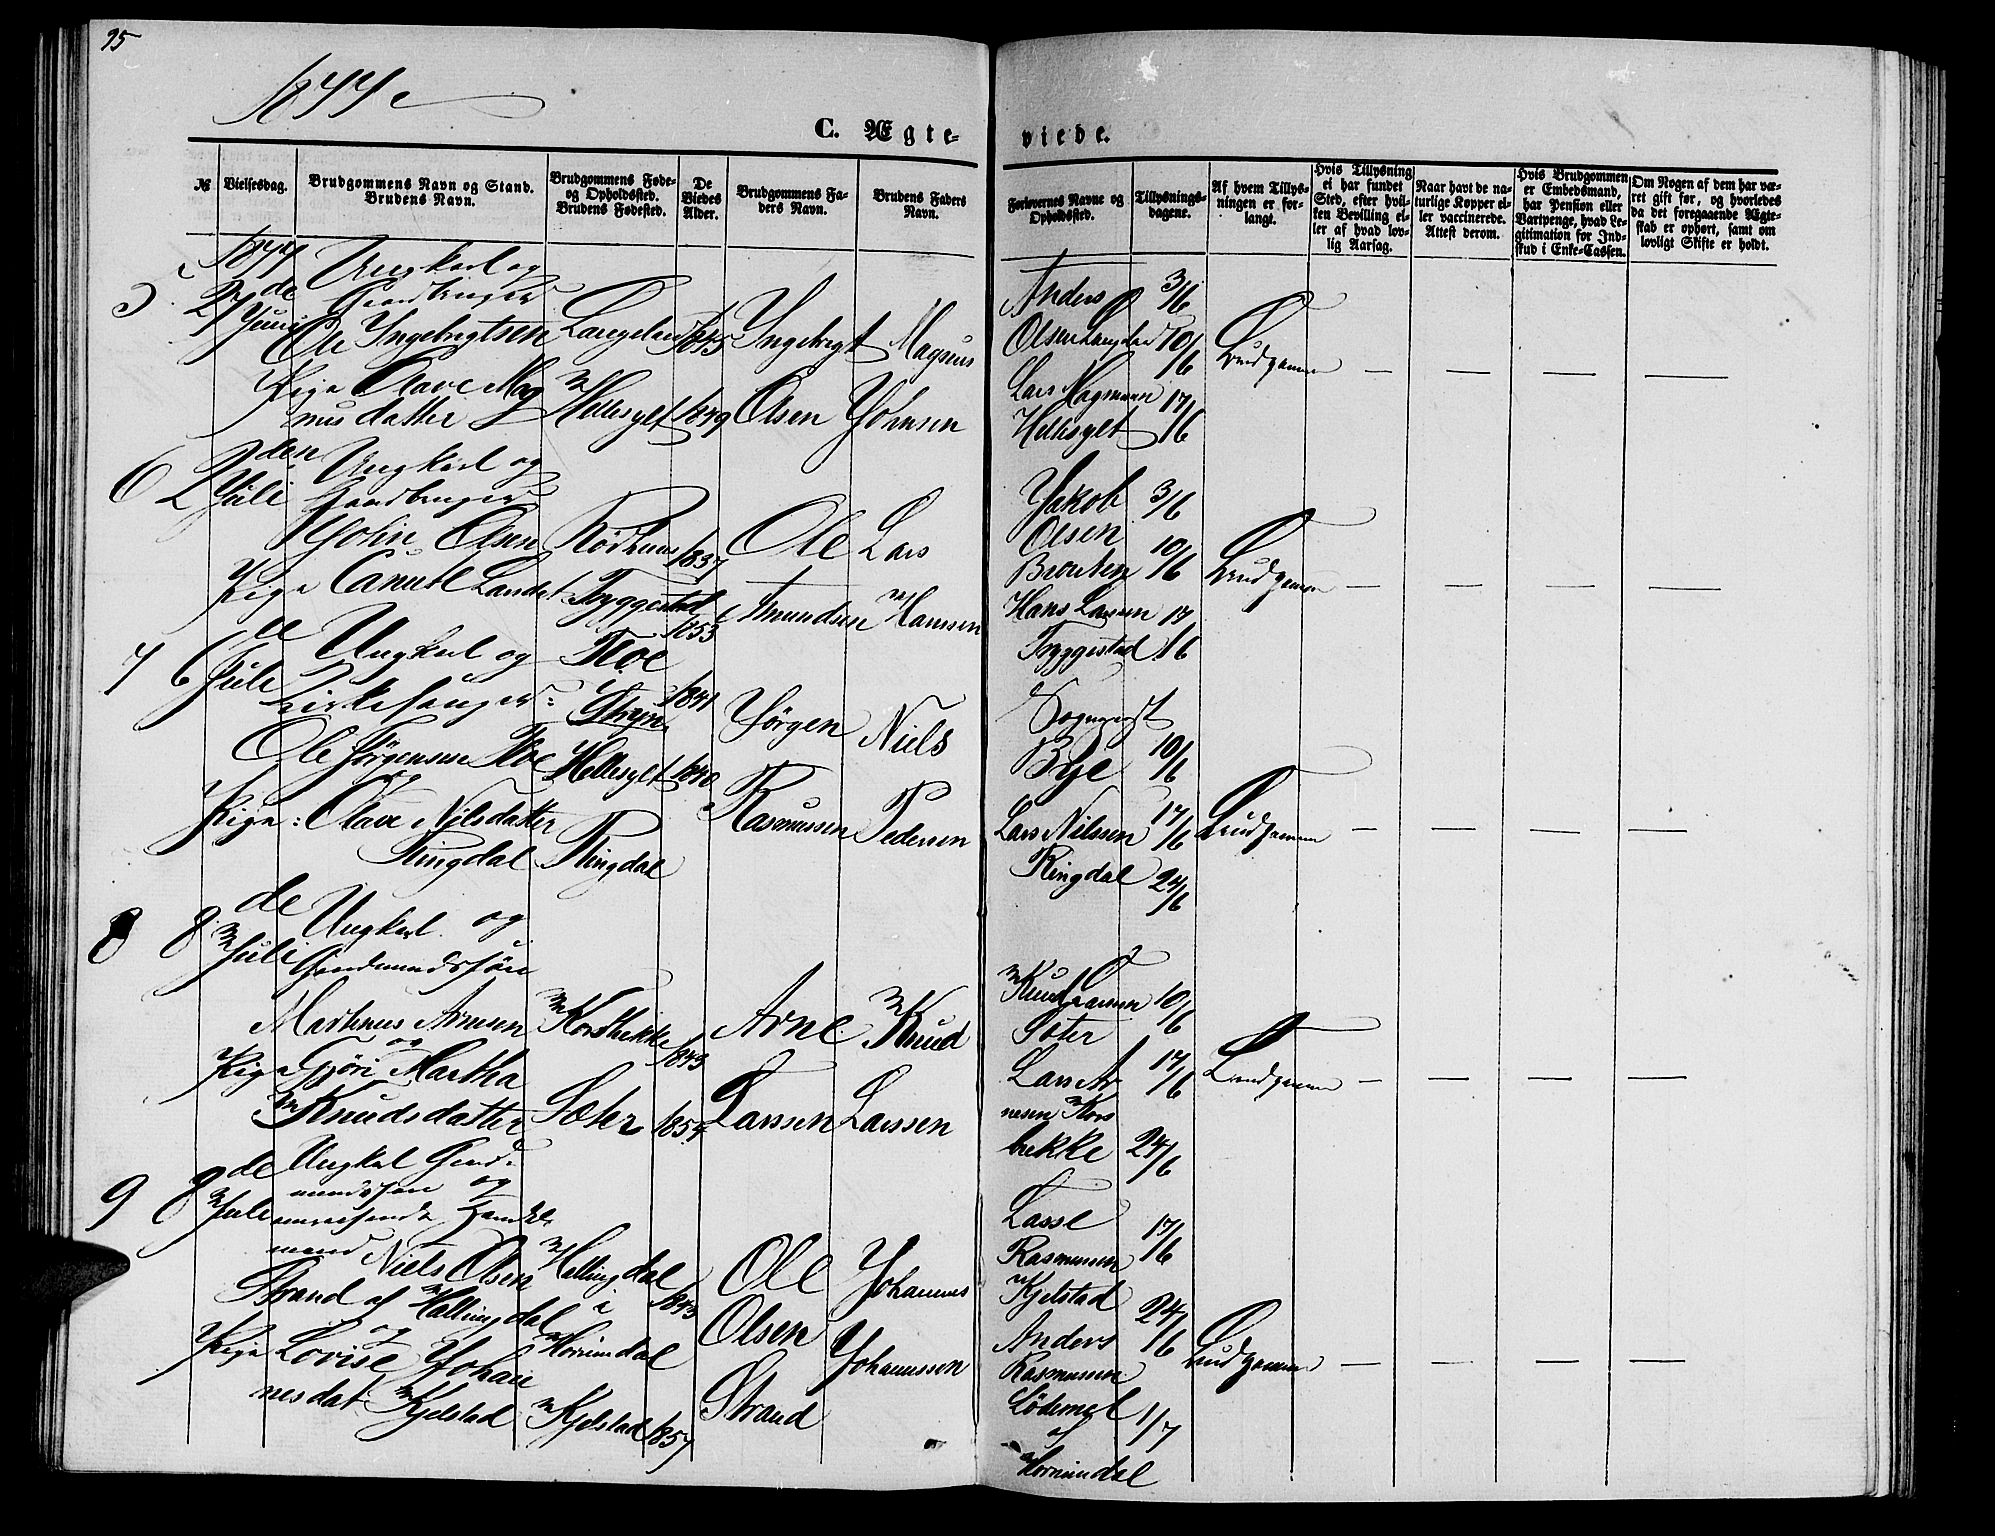 95
1877
C. Ægte-
viede.
№
Vielsesdag.
Brudgommens Navn og Stand.
Brudens Navn.
Brudgommens Føde-
og Opholdssted.
Brudens Fødested.
De
Viedes
Alder.
Brudgommens Fa-
ders Navn.
Brudens Faders
Navn.
Forlovernes Navne og
Opholdssted.
Tillysnings-
dagene.
Af hvem Tillys-
ningen er for-
langt.
Hvis Tillysning
ei har fundet
Sted, efter hvil-
ken Bevilling el-
ler af hvad lov-
lig Aarsag.
Naar havt de na-
turlige Kopper el-
ler vaccinerede.
Attest derom.
Hvis Brudgommen
er Embedsmand,
har Pension eller
Vartpenge, hvad Le-
gitimation for Ind-
skud i Enke-Cassen.
Om Nogen af dem har væ-
ret gift før, og hvorledes
da det foregaaende Ægte-
skab er ophørt, samt om
lovligt Skifte er holdt.
1877
5 27de Juni
Ungkarl og
Gaardbruger
Ole Ingebrigtsen
Pige Olave Mag
nusdatter
Langeland
Hellesylt
1845
1849
Ingebrigt
Olsen
Magnus
Johnsen
Anders
Olsen Langeland
Lars Magnusen
Hellesylt
3/6
10/6
17/6
Brudgommen
— — — —
6 2den Juli
Ungkarl og
Gaardbruger
John Olsen
Pige Camille Larsdat
Rødhuus
Tryggestad
1837
1853
Ole
Amundsen
Lars
Hanssen
Jakob
Olsen
Brouten
Hans Larsen
Tryggestad
3/6
10/6
17/6
Brudgommen
— — — —
7 6de Juli
Ungkarl og
Kirkesanger
Ole Jørgensen Floe
og
Pige: Olave Nilsdatter
Ringdal
Floe
Stryn
Hellesylt
Ringdal
1841
1840
Jørgen
Rasmussen
Niels
Pedersen
Sogneprest
Bye
Lars Nilssen
Ringdal
10/6
17/6
24/6
Brudgommen
— — — —
8 8de Juli
Ungkarl og
Gaardmandssøn
Marthinus Arnesen
og
Pige Gjøri Martha
Knudsdatter
Korsbrekke
Sæter
1843
1854
Arne
Larssen
Knud
Larssen
Knud Larssen
Sæter
Lars Ar
nesen Kors
brekke
10/6
17/6
24/6
Brudgommen
— — — —
9 8de Juli
Ungkarl Gaard-
mandssøn og
omreisende Handels
mand Niels Olsen
Strand af Hallingdal
og
Pige Lovise Johan
nesdat Kjelstad
Hallingdal
i
Hornindal
Kjelstad
1843
1857
Ole
Olsen
Strand
Johannes
Johannssen
Lasse
Rasmussen
Kjelstad
Anders
Rasmussen
Lødemel
af
Hornindal
17/6
24/6
1/7
Brudgommen
— — — —